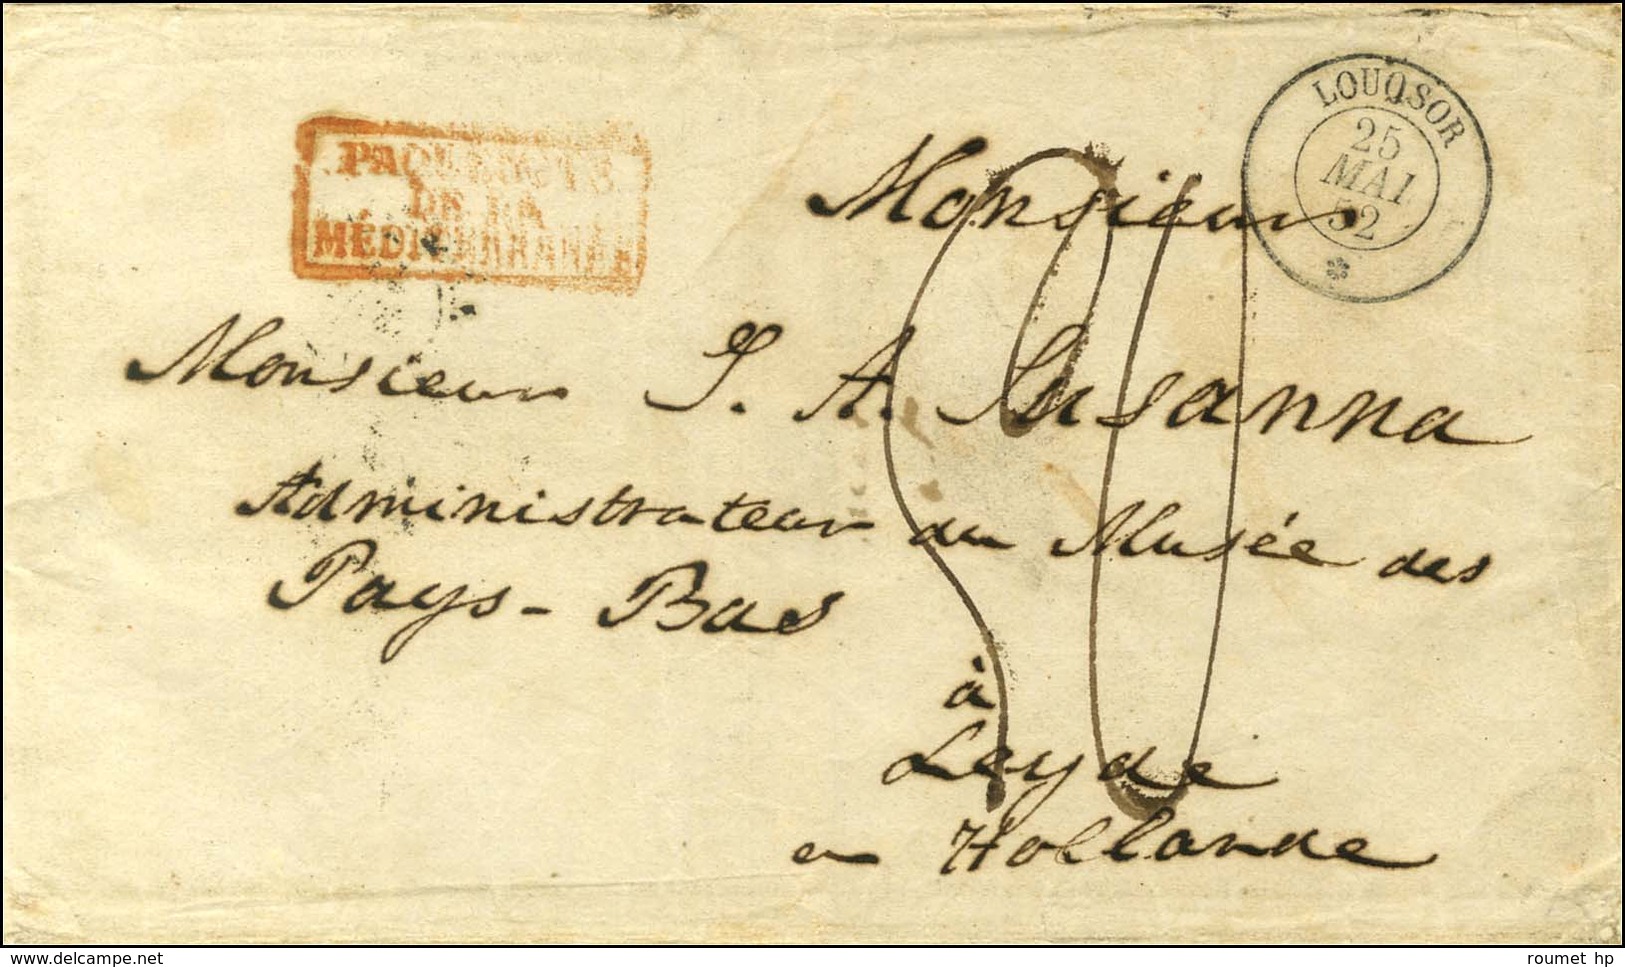 PAQUEBOTS
DE LA
MÉDITERRANÉE
LOUQSOR
25
MAI
52
Monsieur
Monsieur J. A. Susanna
Administrateur du Musée des
Pays-Bas
à
Leyde
en Hollande
www.delcampe.net
roumet hp